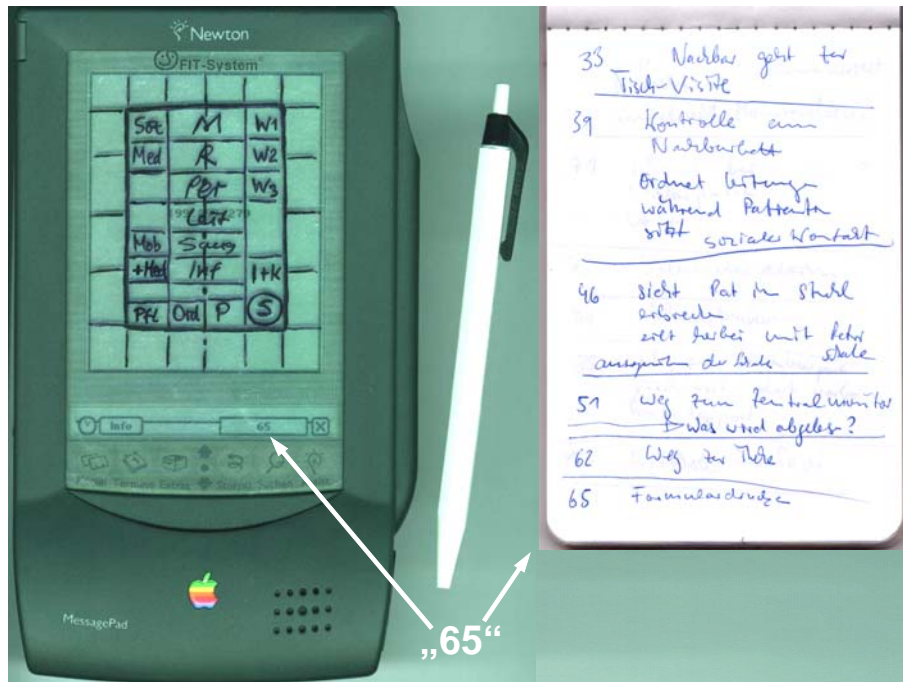 Newton
FIT-System
Soz M W1
Med R W2
Per W3
Leit
Mob Saug
+Med Inf I+K
Pfl Ord P S
Info 65
Termine Extras Suchen
MessagePad
33 Nachbar geht zur
Tisch-Visite
39 Kontrolle am
Nachbarbett
ordnet Leitungen
während Patientin
sitzt sozialer Kontakt
46 sieht Pat im Stuhl
erbrechen
eilt herbei mit
der Schale
51 Weg zum Zentralmonitor
Was wird abgelesen?
62 Weg zur Theke
65 Formulardrucke
„65“